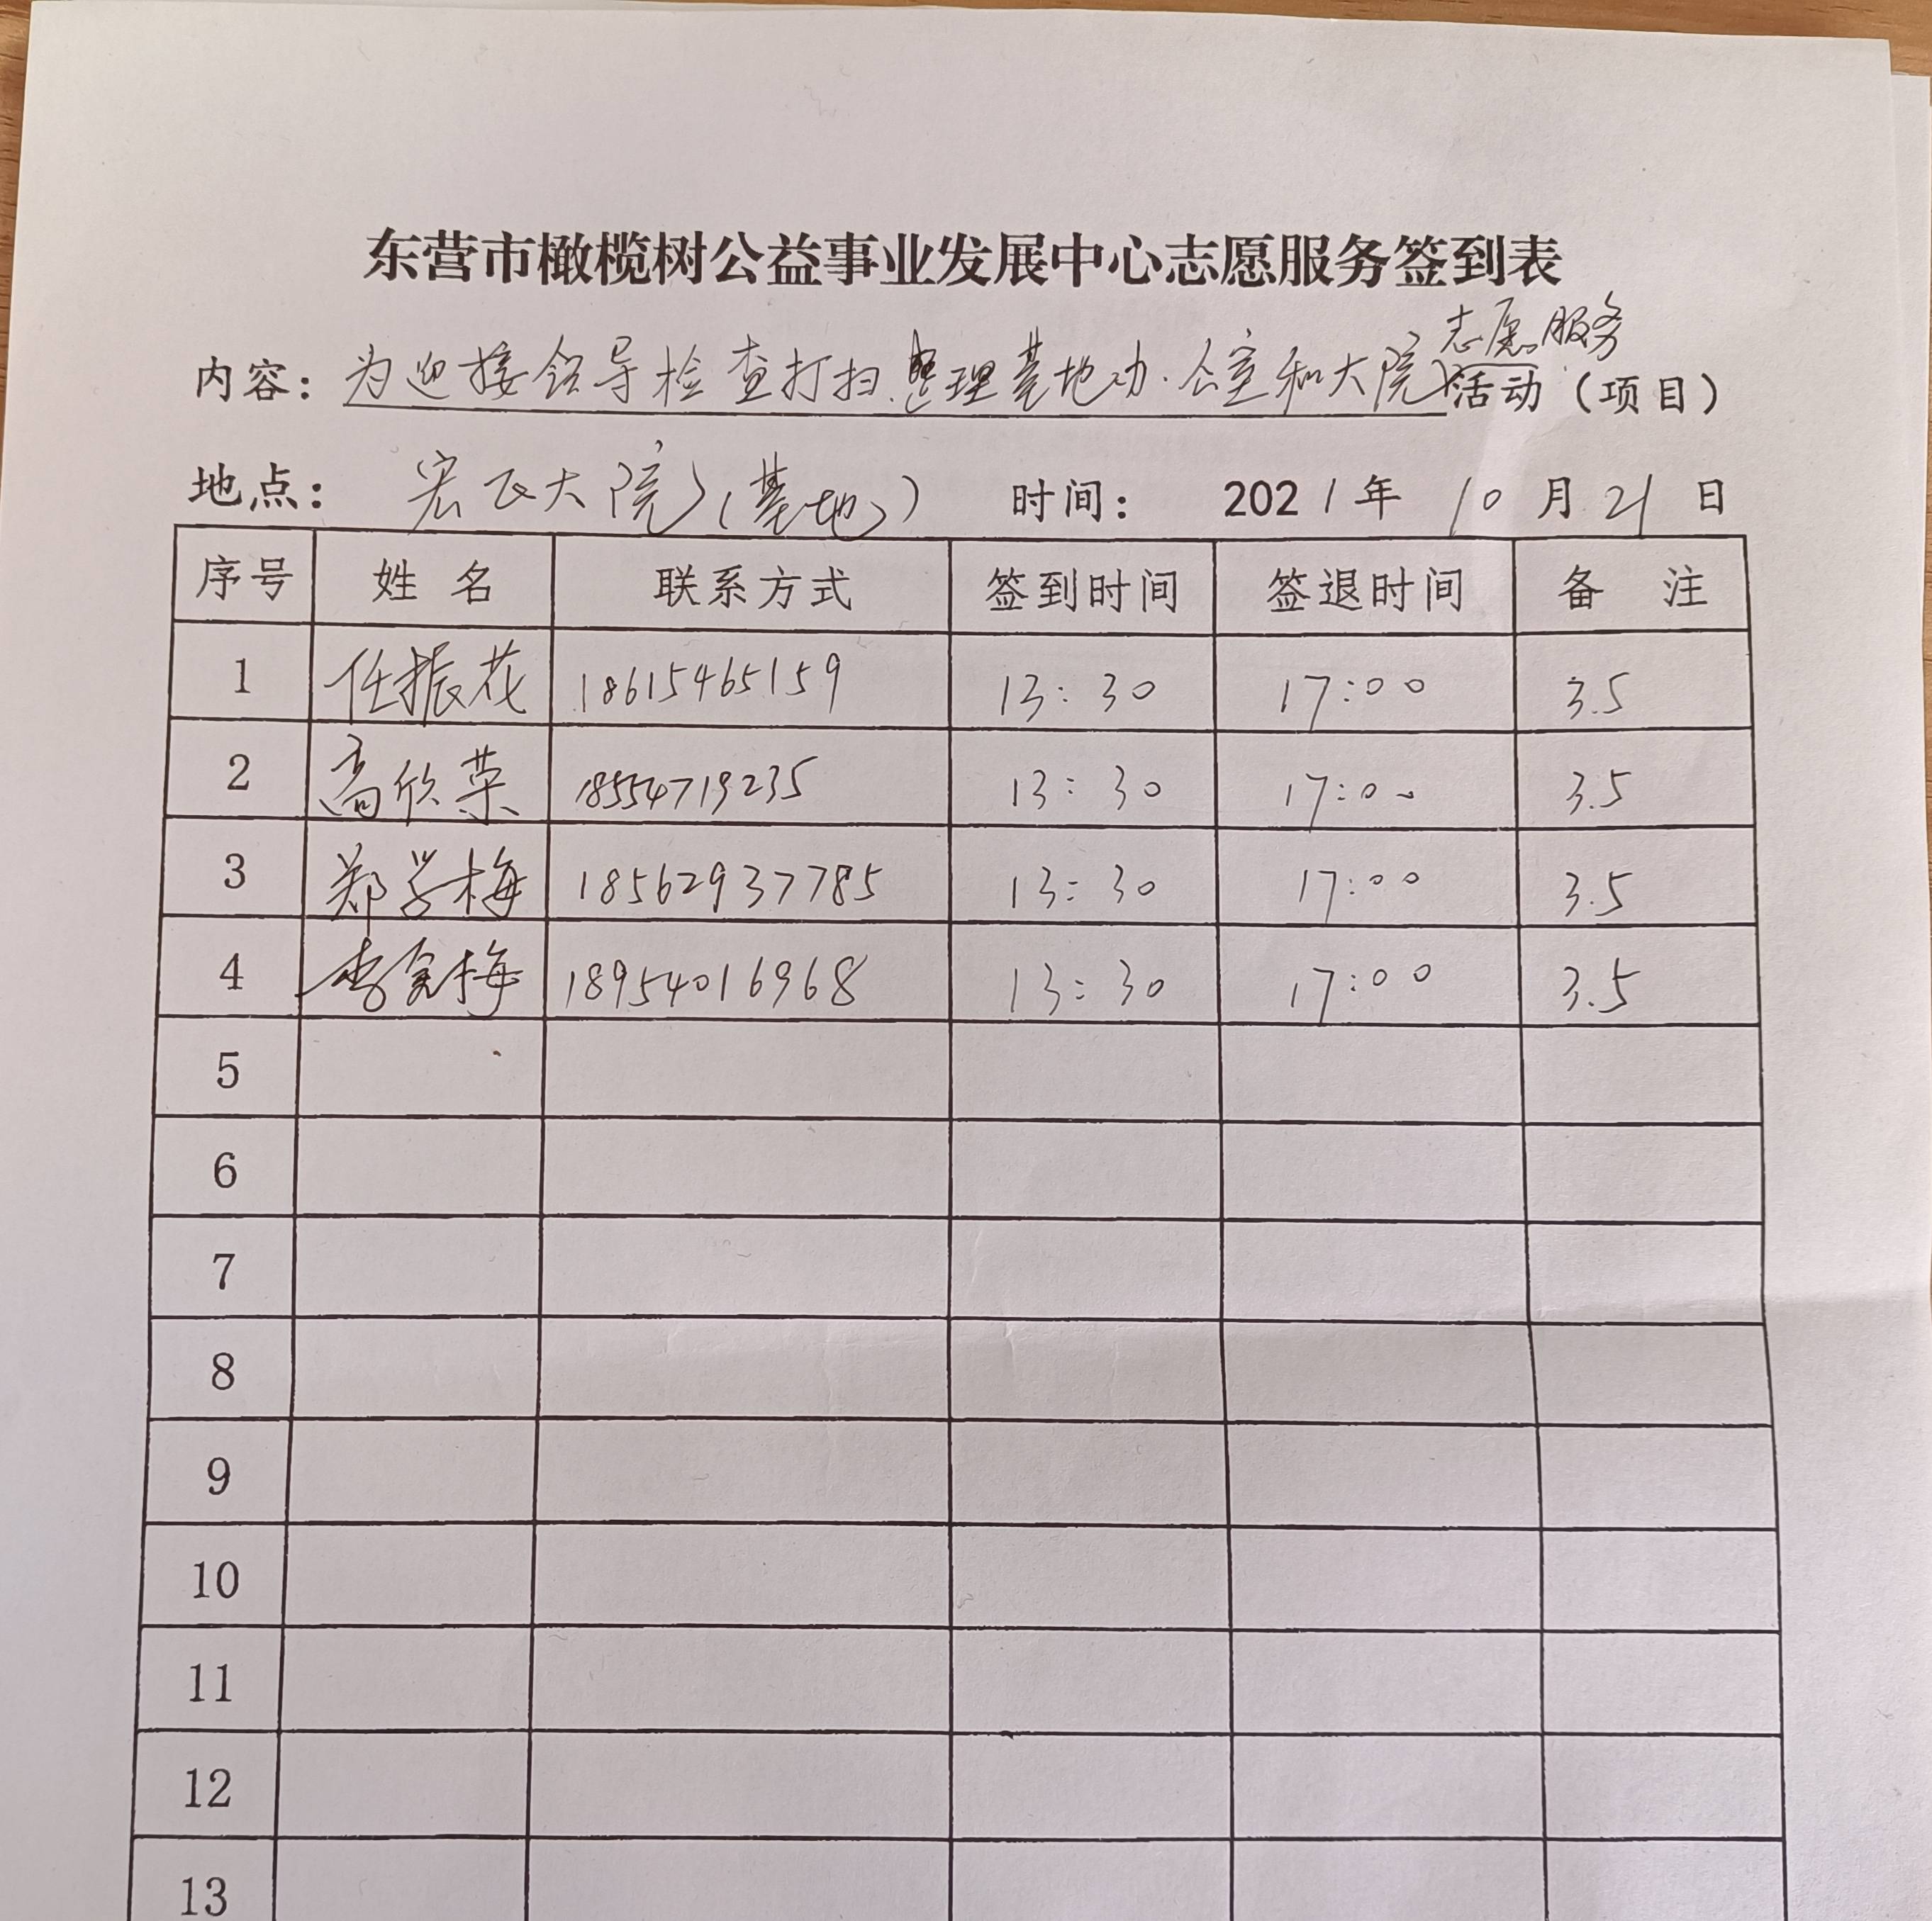 东营市橄榄树公益事业发展中心志愿服务签到表
志愿服务
内容：为迎接领导检查打扫.整理基地办公室和大院活动（项目）
地点：宏飞大院（基地） 时间：2021年10月21日
序号 姓名 联系方式 签到时间 签退时间 备注
1 任振花 18615465159 13:30 17:00 3.5
2 高欣荣 18554719235 13:30 17:00 3.5
3 郑学梅 18562937785 13:30 17:00 3.5
4 李金梅 18954016968 13:30 17:00 3.5
5
6
7
8
9
10
11
12
13